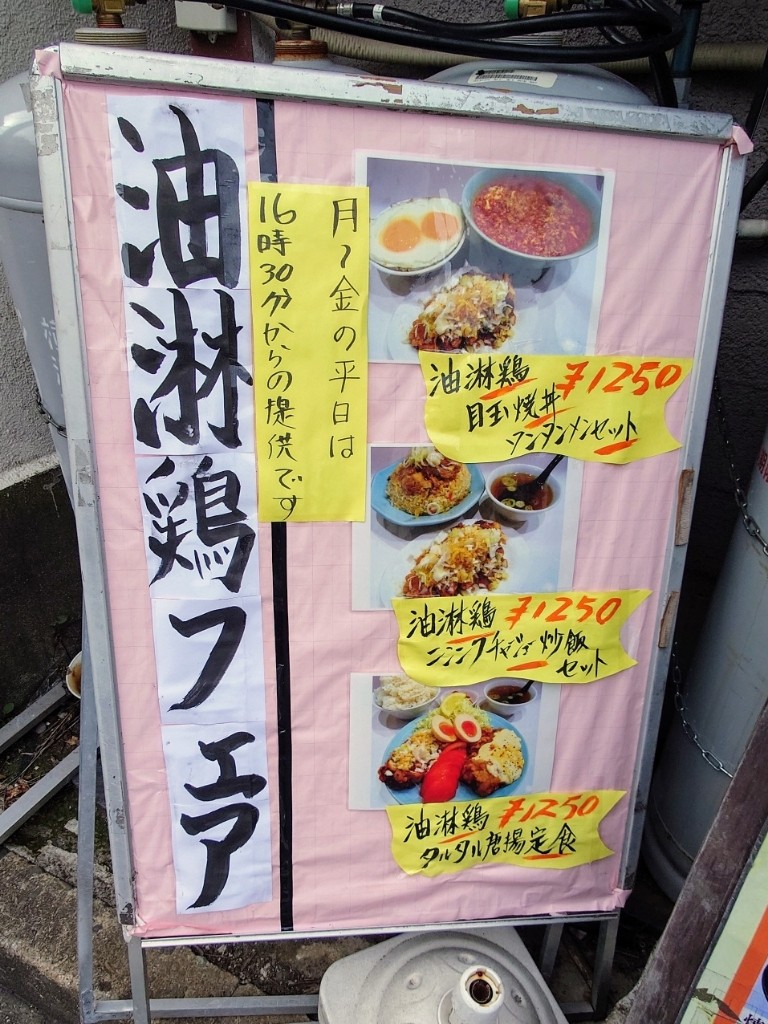 油淋鶏フェア
月〜金の平日は
16時30分からの提供です
油淋鶏 ¥1250
目玉焼丼
タンタンメンセット
油淋鶏 ¥1250
ニンニクチャジャー炒飯
セット
油淋鶏 ¥1250
タルタル唐揚定食